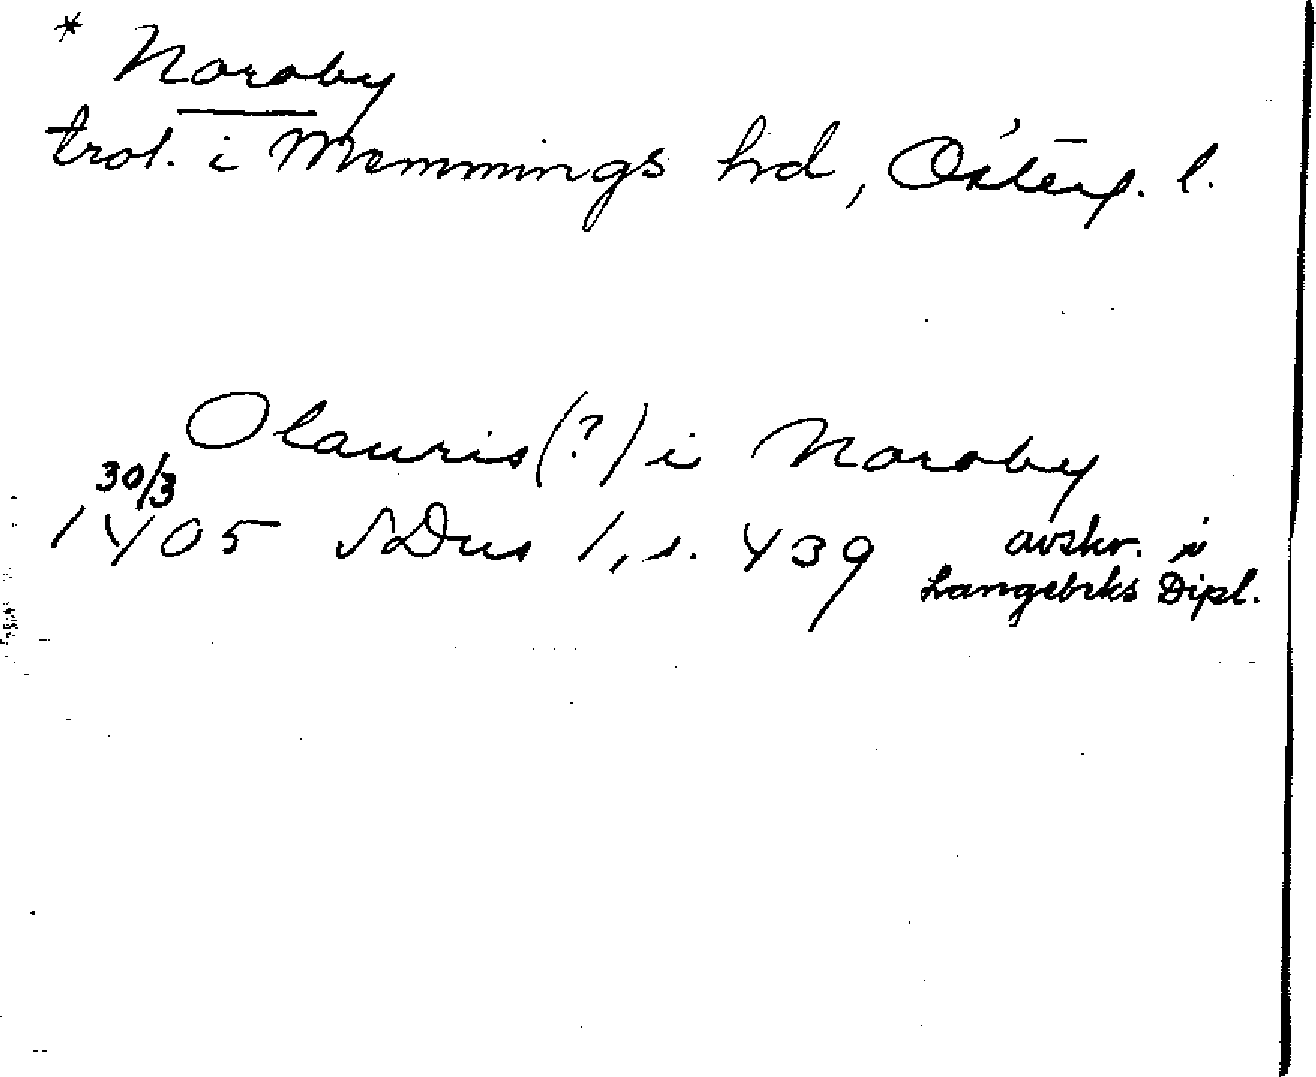 * Noraby
trol. i Memmings hd, Österg. l.
Olauris (?) i Noraby
30/3
1405 SDns 1, s. 439 avskr. i
Langebeks Dipl.